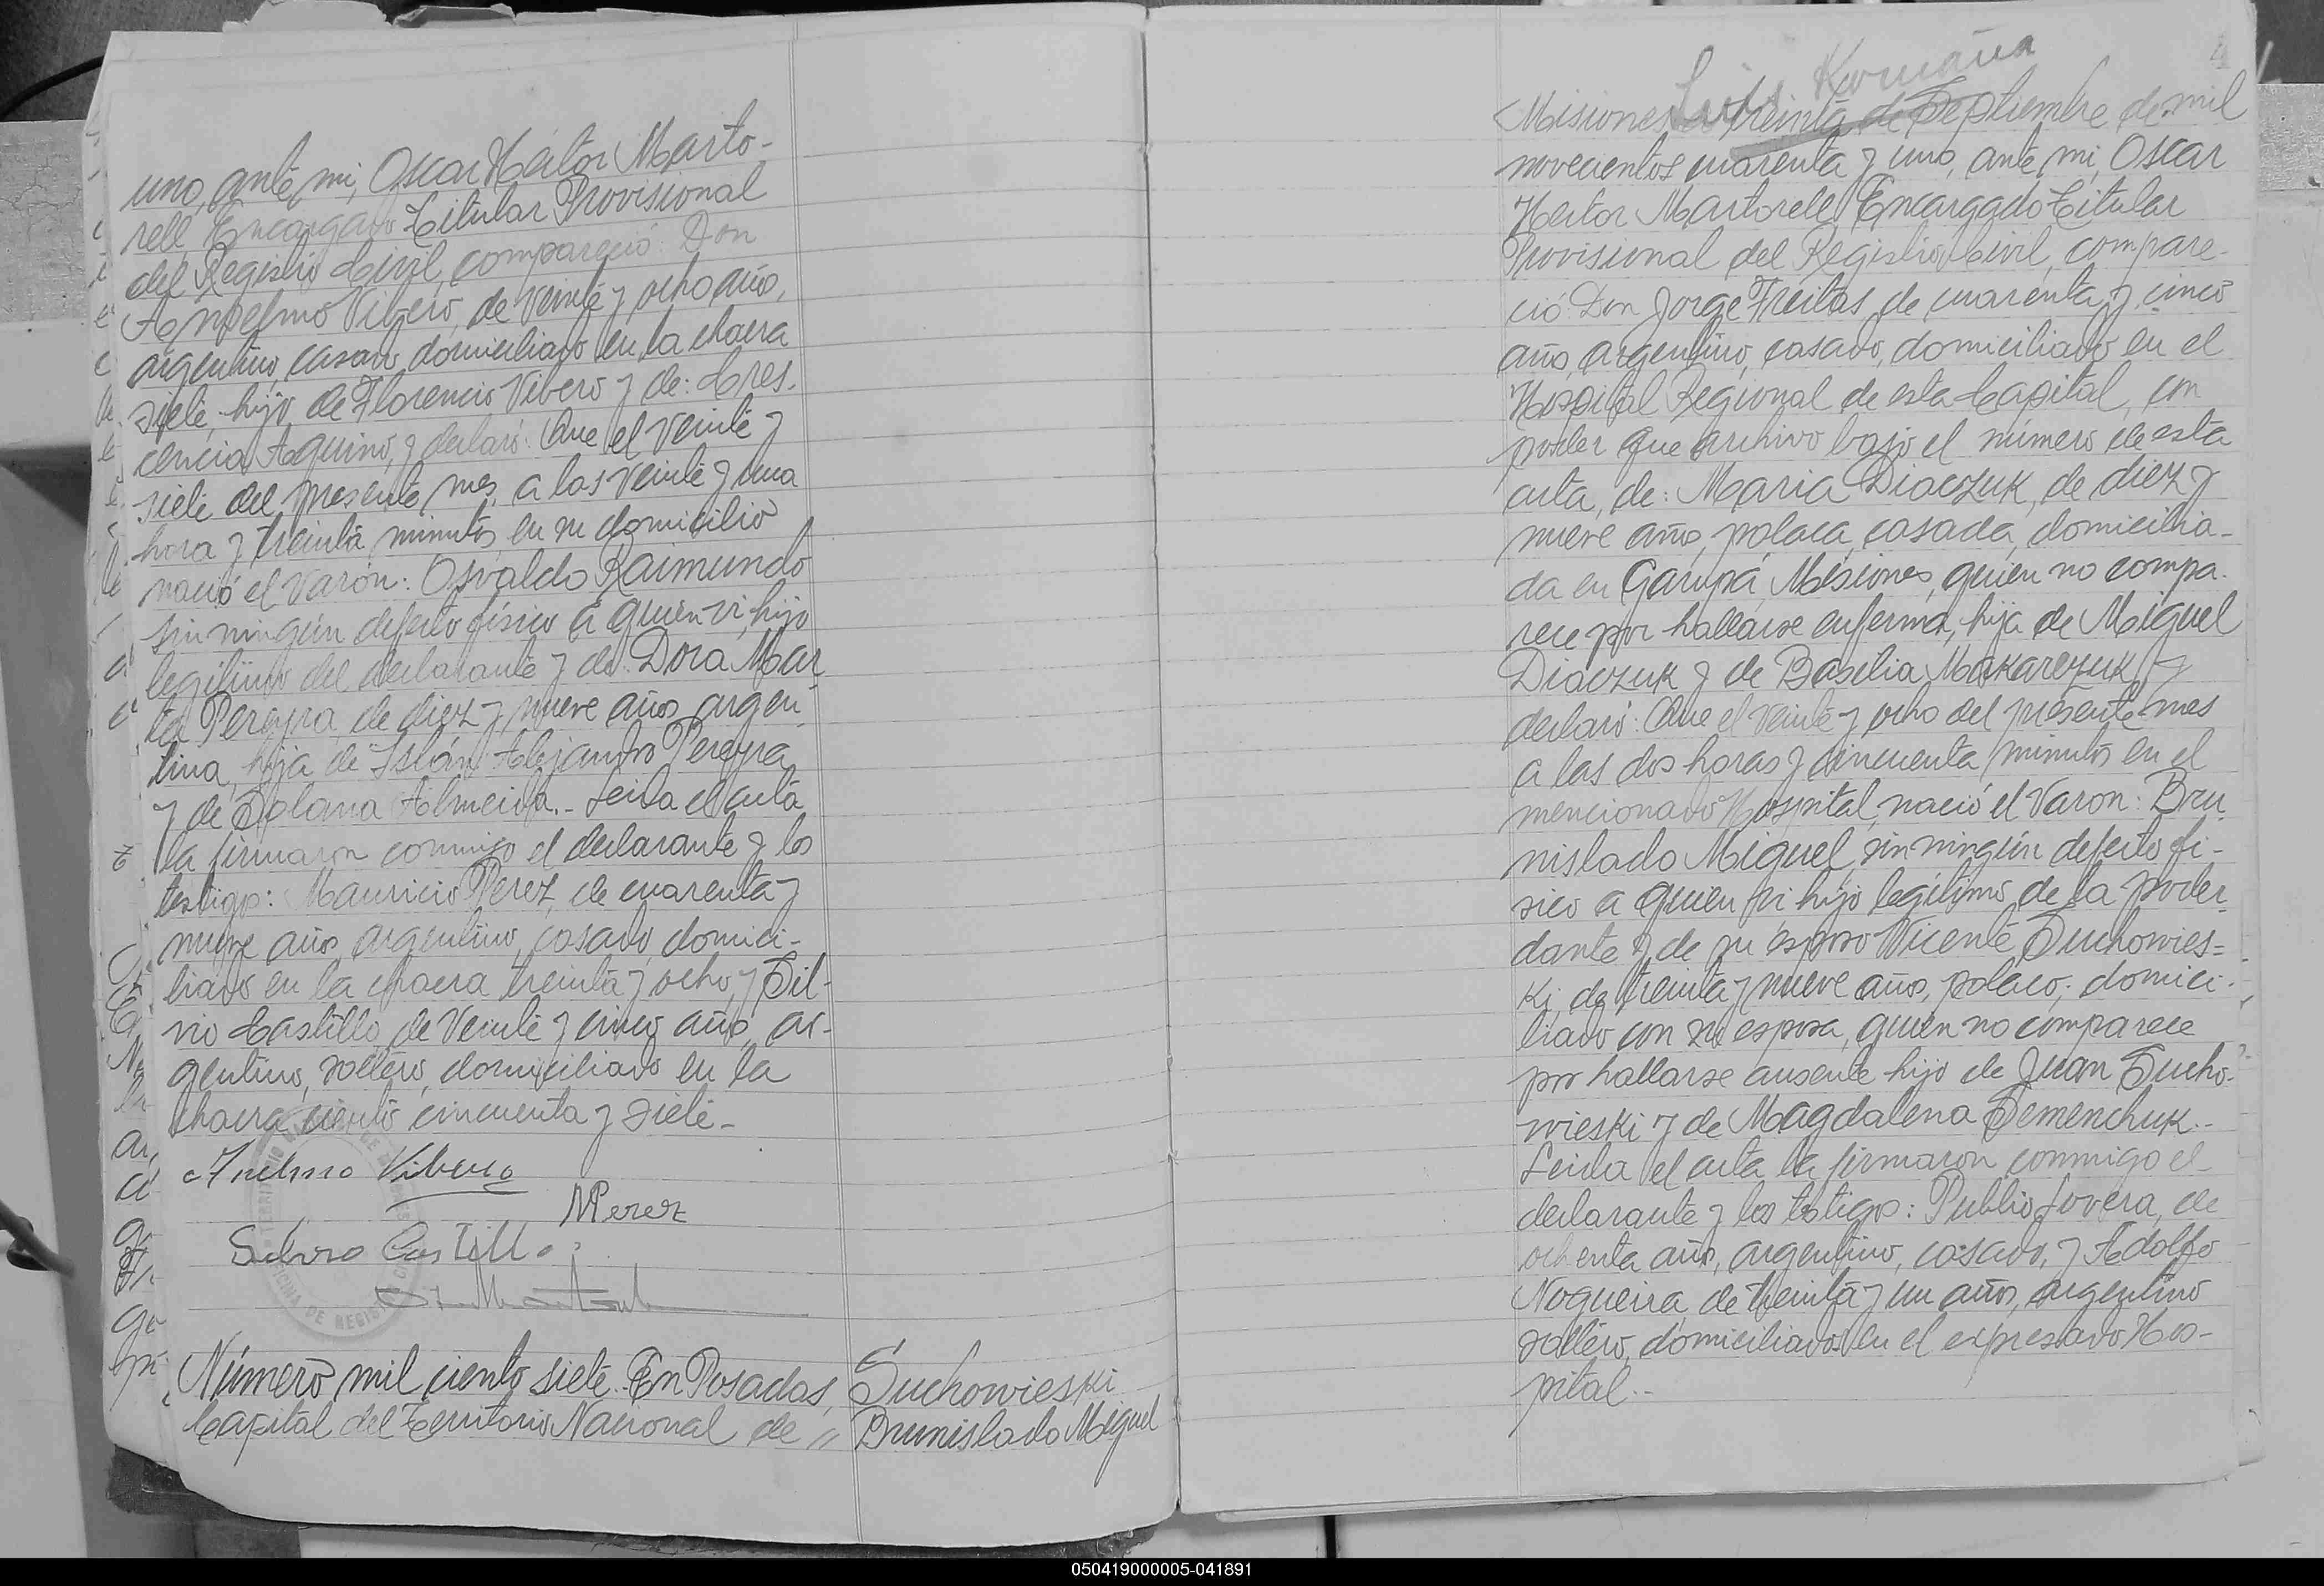 uno, ante mi, Oscar Héctor Marto-
rell, Encargado Titular Provisional
del Registro Civil, compareció: Don
Anselmo Vibero, de veinte y ocho años,
argentino, casado, domiciliado en la chacra
siete, hijo de Florencio Vibero y de: Cres-
cencia Aquino, y declaró: Que el veinte y
siete del presente mes, a las veinte y una
hora y treinta minutos, en su domicilio
nació el varón: Osvaldo Raimundo
sin ningún defecto físico a quien vi, hijo
legítimo del declarante y de: Dora Mar-
ta Pereyra, de diez y nueve años, argen-
tina, hija de Alejandro Pereyra
y de Solana Almeida.- Leida el acta
la firmaron conmigo el declarante y los
testigos: Mauricio Perez, de cuarenta y
nueve años, argentino, casado, domici-
liado en la chacra treinta y ocho, y Sil-
vio Castillo, de veinte y cinco años, ar-
gentino, soltero, domiciliado en la
chacra ciento cincuenta y siete.-
Anselmo Vibero
MPerez
Silvio Castillo
Número mil ciento siete. En Posadas,
Capital del Territorio Nacional de "
Suchowieski
Brunislado Miguel
Luis Romaña
Misiones a treinta de Septiembre de mil
novecientos cuarenta y uno, ante mi, Oscar
Héctor Martorell, Encargado Titular
Provisional del Registro Civil, compare-
ció: Don Jorge Freitas, de cuarenta y cinco
años, argentino, casado, domiciliado en el
Hospital Regional de esta Capital, con
poder que archivo bajo el número de esta
acta, de: Maria Diaczuk, de diez y
nueve años, polaca, casada, domicilia-
da en Garupá, Misiones, quien no compa-
rece por hallarse enferma, hija de Miguel
Diaczuk y de Basilia Makarczuk, y
declaró: Que el veinte y ocho del presente mes
a las dos horas y cincuenta minutos en el
mencionado Hospital, nació el varon: Bru-
nislado Miguel, sin ningún defecto fi-
sico a quien vi, hijo legítimo de la poder-
dante y de su esposo Vicente Suchowies=
ki, de treinta y nueve años, polaco, domici-
liado con su esposa, quien no comparece
por hallarse ausente, hijo de Juan Sucho-
wieski y de Magdalena Semenchuk.-
Leida el acta la firmaron conmigo el
declarante y los testigos: Publio Jovera, de
ochenta años, argentino, casado, y Adolfo
Nogueira, de treinta y un años, argentino
soltero, domiciliados en el expresado Hos-
pital.-
050419000005-041891